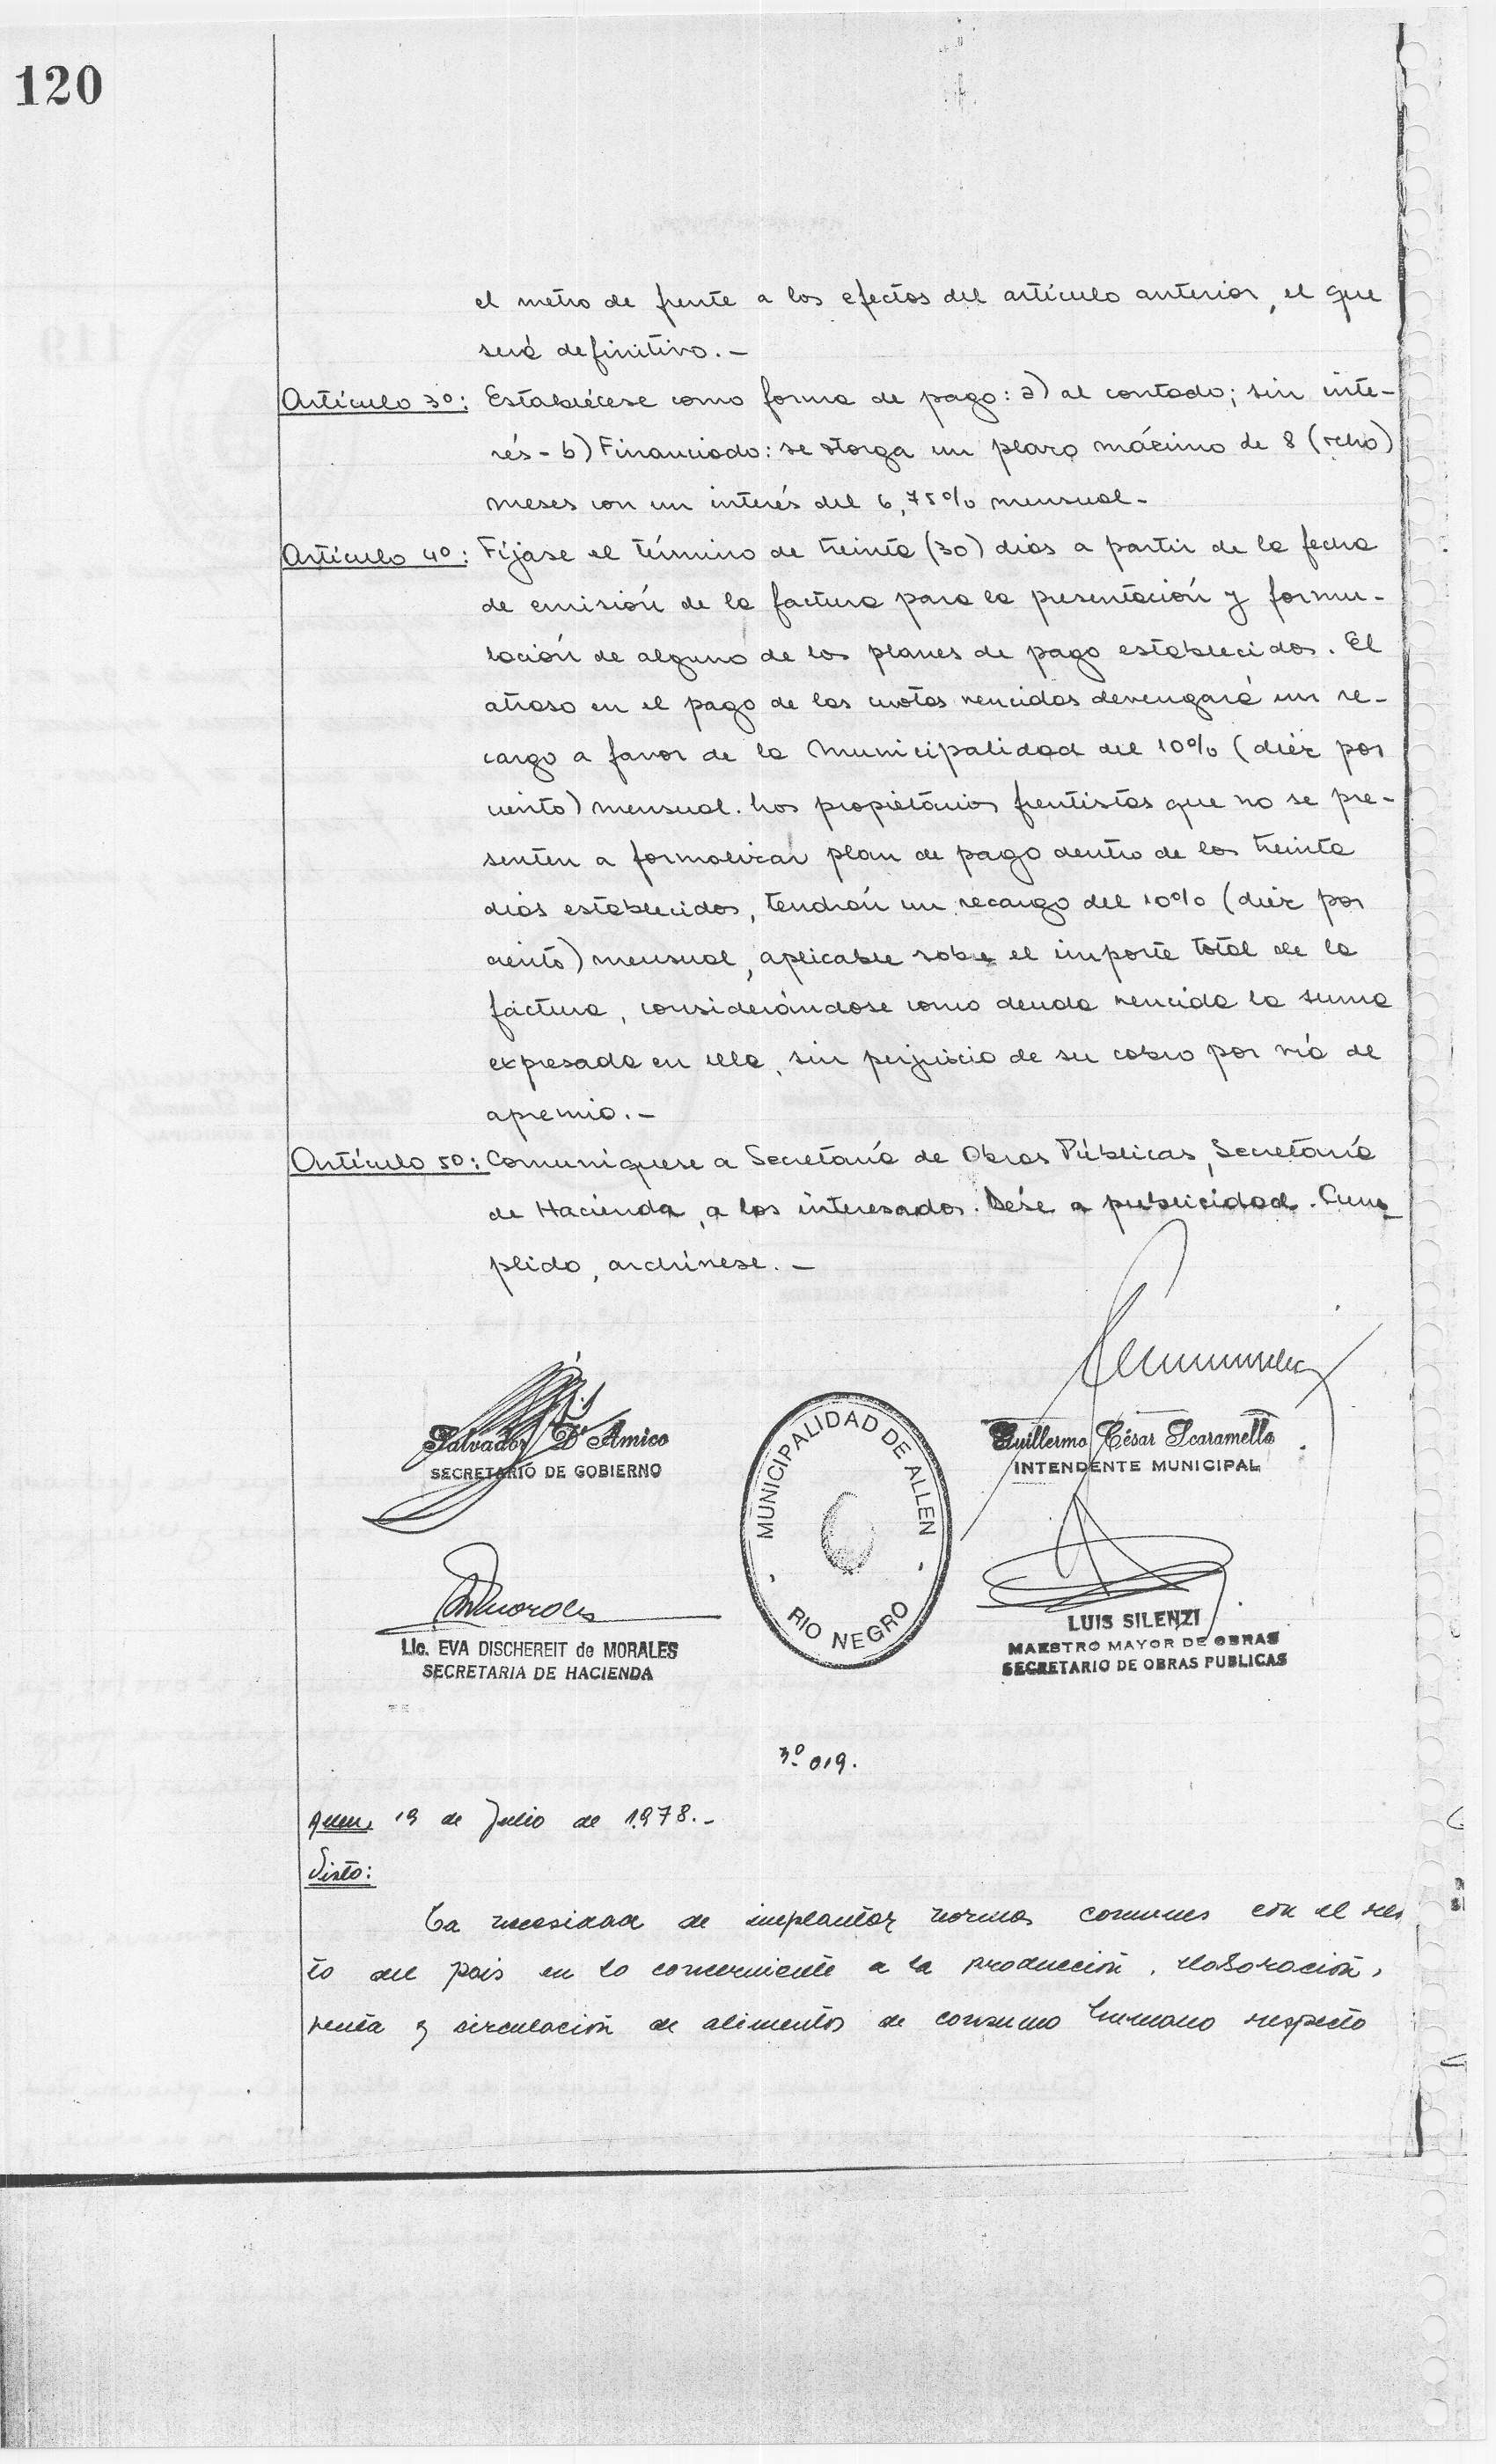 120
el metro de frente a los efectos del artículo anterior, el que
será definitivo.-
Artículo 3º: Establécese como forma de pago: a) al contado; sin inte-
rés - b) Financiado: se otorga un plazo máximo de 8 (ocho)
meses con un interés del 6,75% mensual-
Artículo 4º: Fíjase el término de treinta (30) días a partir de la fecha
de emisión de la factura para la presentación y formu-
lación de alguno de los planes de pago establecidos. El
atraso en el pago de las cuotas vencidas devengará un re-
cargo a favor de la Municipalidad del 10% (diéz por
ciento) mensual. Los propietários frentistas que no se pre-
senten a formalizar plan de pago dentro de los treinta
días establecidos, tendrán un recargo del 10% (diéz por
ciento) mensual, aplicable sobre el importe total de la
factura, considerándose como deuda vencida la suma
expresada en ella, sin perjuicio de su cobro por vía de
apremio.-
Artículo 5º: Comuníquese a Secretaría de Obras Públicas, Secretaría
de Hacienda, a los interesados. Dése a publicidad. Cum-
plido, archívese.-
Salvador D'Amico
SECRETARIO DE GOBIERNO
Guillermo César Scaramella
INTENDENTE MUNICIPAL
MUNICIPALIDAD DE ALLEN
RIO NEGRO
Lic. EVA DISCHEREIT de MORALES
SECRETARIA DE HACIENDA
LUIS SILENZI
MAESTRO MAYOR DE OBRAS
SECRETARIO DE OBRAS PUBLICAS
019.
Allen, 19 de Julio de 1978.-
Visto:
La necesidad de implantar normas comunes con el res
to del país en lo concerniente a la producción, elaboración,
venta y circulación de alimentos de consumo humano respecto